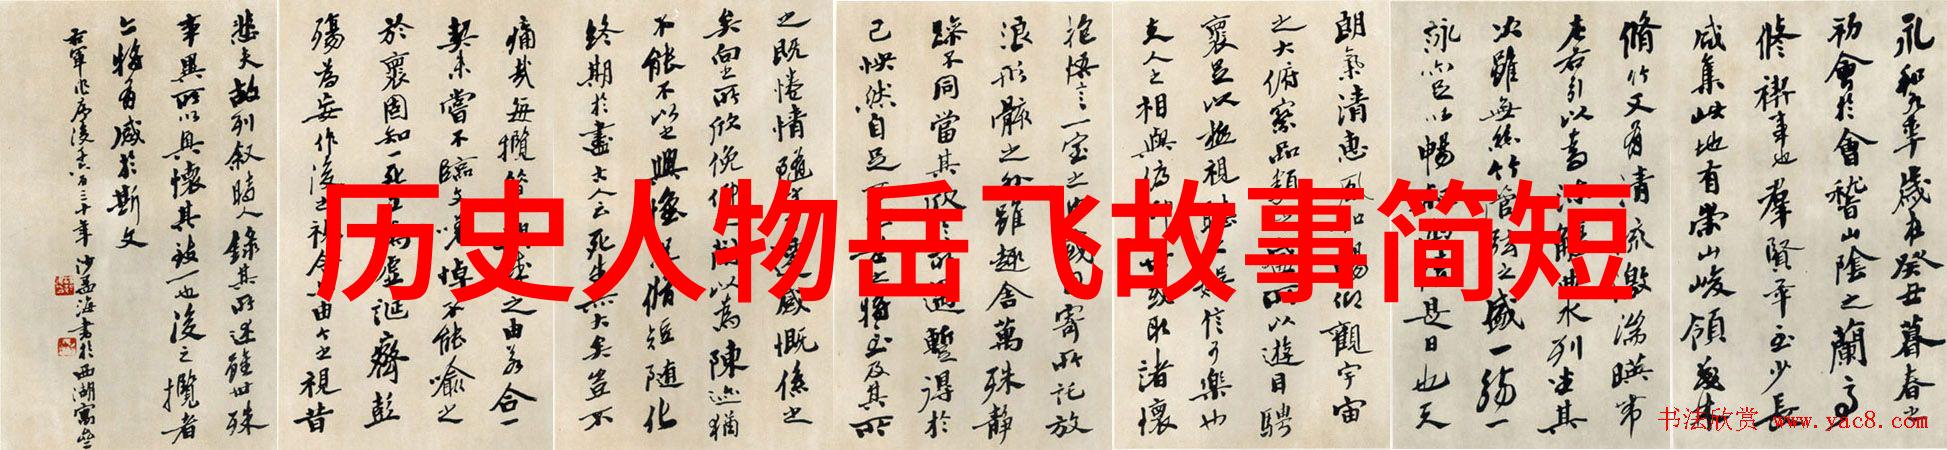 历史人物岳飞故事简短
永和九年歲在癸丑暮春之
初會於會稽山陰之蘭亭
修禊事也羣賢畢至少長
咸集此地有崇山峻領茂林
脩竹又有清流激湍暎帶
左右引以為流觴曲水列坐其
次雖無絲竹管弦之盛一觴一
詠亦足以暢是日也天
朗氣清惠風和暢仰觀宇宙
之大俯察品類之盛所以遊目騁
懷足以極視聽之娛信可樂也
夫人之相與俯仰一世或取諸懷
抱悟言一室之內或因寄所託放
浪形骸之外雖趣舍萬殊靜
躁不同當其欣於所遇暫得於
己怏然自足不知老之將至及其所
之既惓情隨事遷感慨係之
矣向之所欣俛仰之間以為陳迹猶
不能不以之興懷況脩短隨化
終期於盡古人云死生亦大矣豈不
痛哉每攬昔人興感之由若合一
契未嘗不臨文嗟悼不能喻之
於懷固知一死生為虛誕齊彭
殤為妄作後之視今亦由今之視昔
悲夫故列敘時人錄其所述雖世殊
事異所以興懷其致一也後之攬者
亦將有感於斯文
右軍作序後千六百三十年 沙孟海書於西湖寓廬
书法欣赏 www.yac8.com